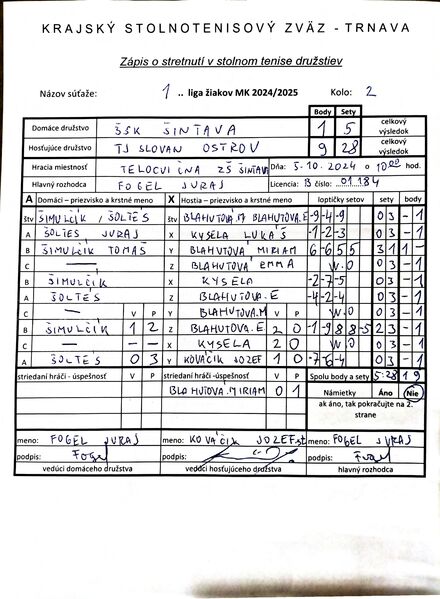 KRAJSKÝ STOLNOTENISOVÝ ZVÄZ - TRNAVA
Zápis o stretnutí v stolnom tenise družstiev
Názov súťaže: 1 .. liga žiakov MK 2024/2025 Kolo: 2
Body Sety
Domáce družstvo ŠŠK ŠINTAVA 1 5 celkový výsledok
Hosťujúce družstvo TJ SLOVAN OSTROV 9 28 celkový výsledok
Hracia miestnosť TELOCVIČNA ZŠ ŠINTAVA Dňa: 5.10.2024 o 10 00 hod.
Hlavný rozhodca FOGEL JURAJ Licencia: B číslo: 01184
A Domáci - priezvisko a krstné meno X Hostia - priezvisko a krstné meno loptičky setov sety body
štv ŠIMULČÍK / ŠOLTÉS štv BLAHUTOVÁ.M BLAHUTOVÁ.E -9-4-9 0 3 - 1
A ŠOLTÉS JURAJ X KYSELA LUKÁŠ -1-2-3 0 3 - 1
B ŠIMULČÍK TOMÁŠ Y BLAHUTOVÁ MIRIAM 6-6 5 5 3 1 1 -
C — Z BLAHUTOVÁ EMMA W.O 0 3 - 1
B ŠIMULČÍK X KYSELA -2-7-5 0 3 - 1
A ŠOLTÉS Z BLAHUTOVÁ.E -4-2-4 0 3 - 1
C — V P Y BLAHUTOVÁ.M V P W.O 0 3 - 1
B ŠIMULČÍK 1 2 Z BLAHUTOVÁ.E 2 0 -1-9 8 8-5 2 3 - 1
C — X KYSELA 2 0 W.O 0 3 - 1
A ŠOLTÉS 0 3 Y KOVÁČIK JOZEF 1 0 -7-6-4 0 3 - 1
striedaní hráči - úspešnosť V P striedaní hráči - úspešnosť V P Spolu body a sety 5:28 1 9
BLAHUTOVÁ MIRIAM 0 1 Námietky Áno Nie
ak áno, tak pokračujte na 2. strane
meno: FOGEL JURAJ meno: KOVÁČIK JOZEF st meno: FOGEL JURAJ
podpis: Fogel podpis: podpis: Fogel
vedúci domáceho družstva vedúci hosťujúceho družstva hlavný rozhodca